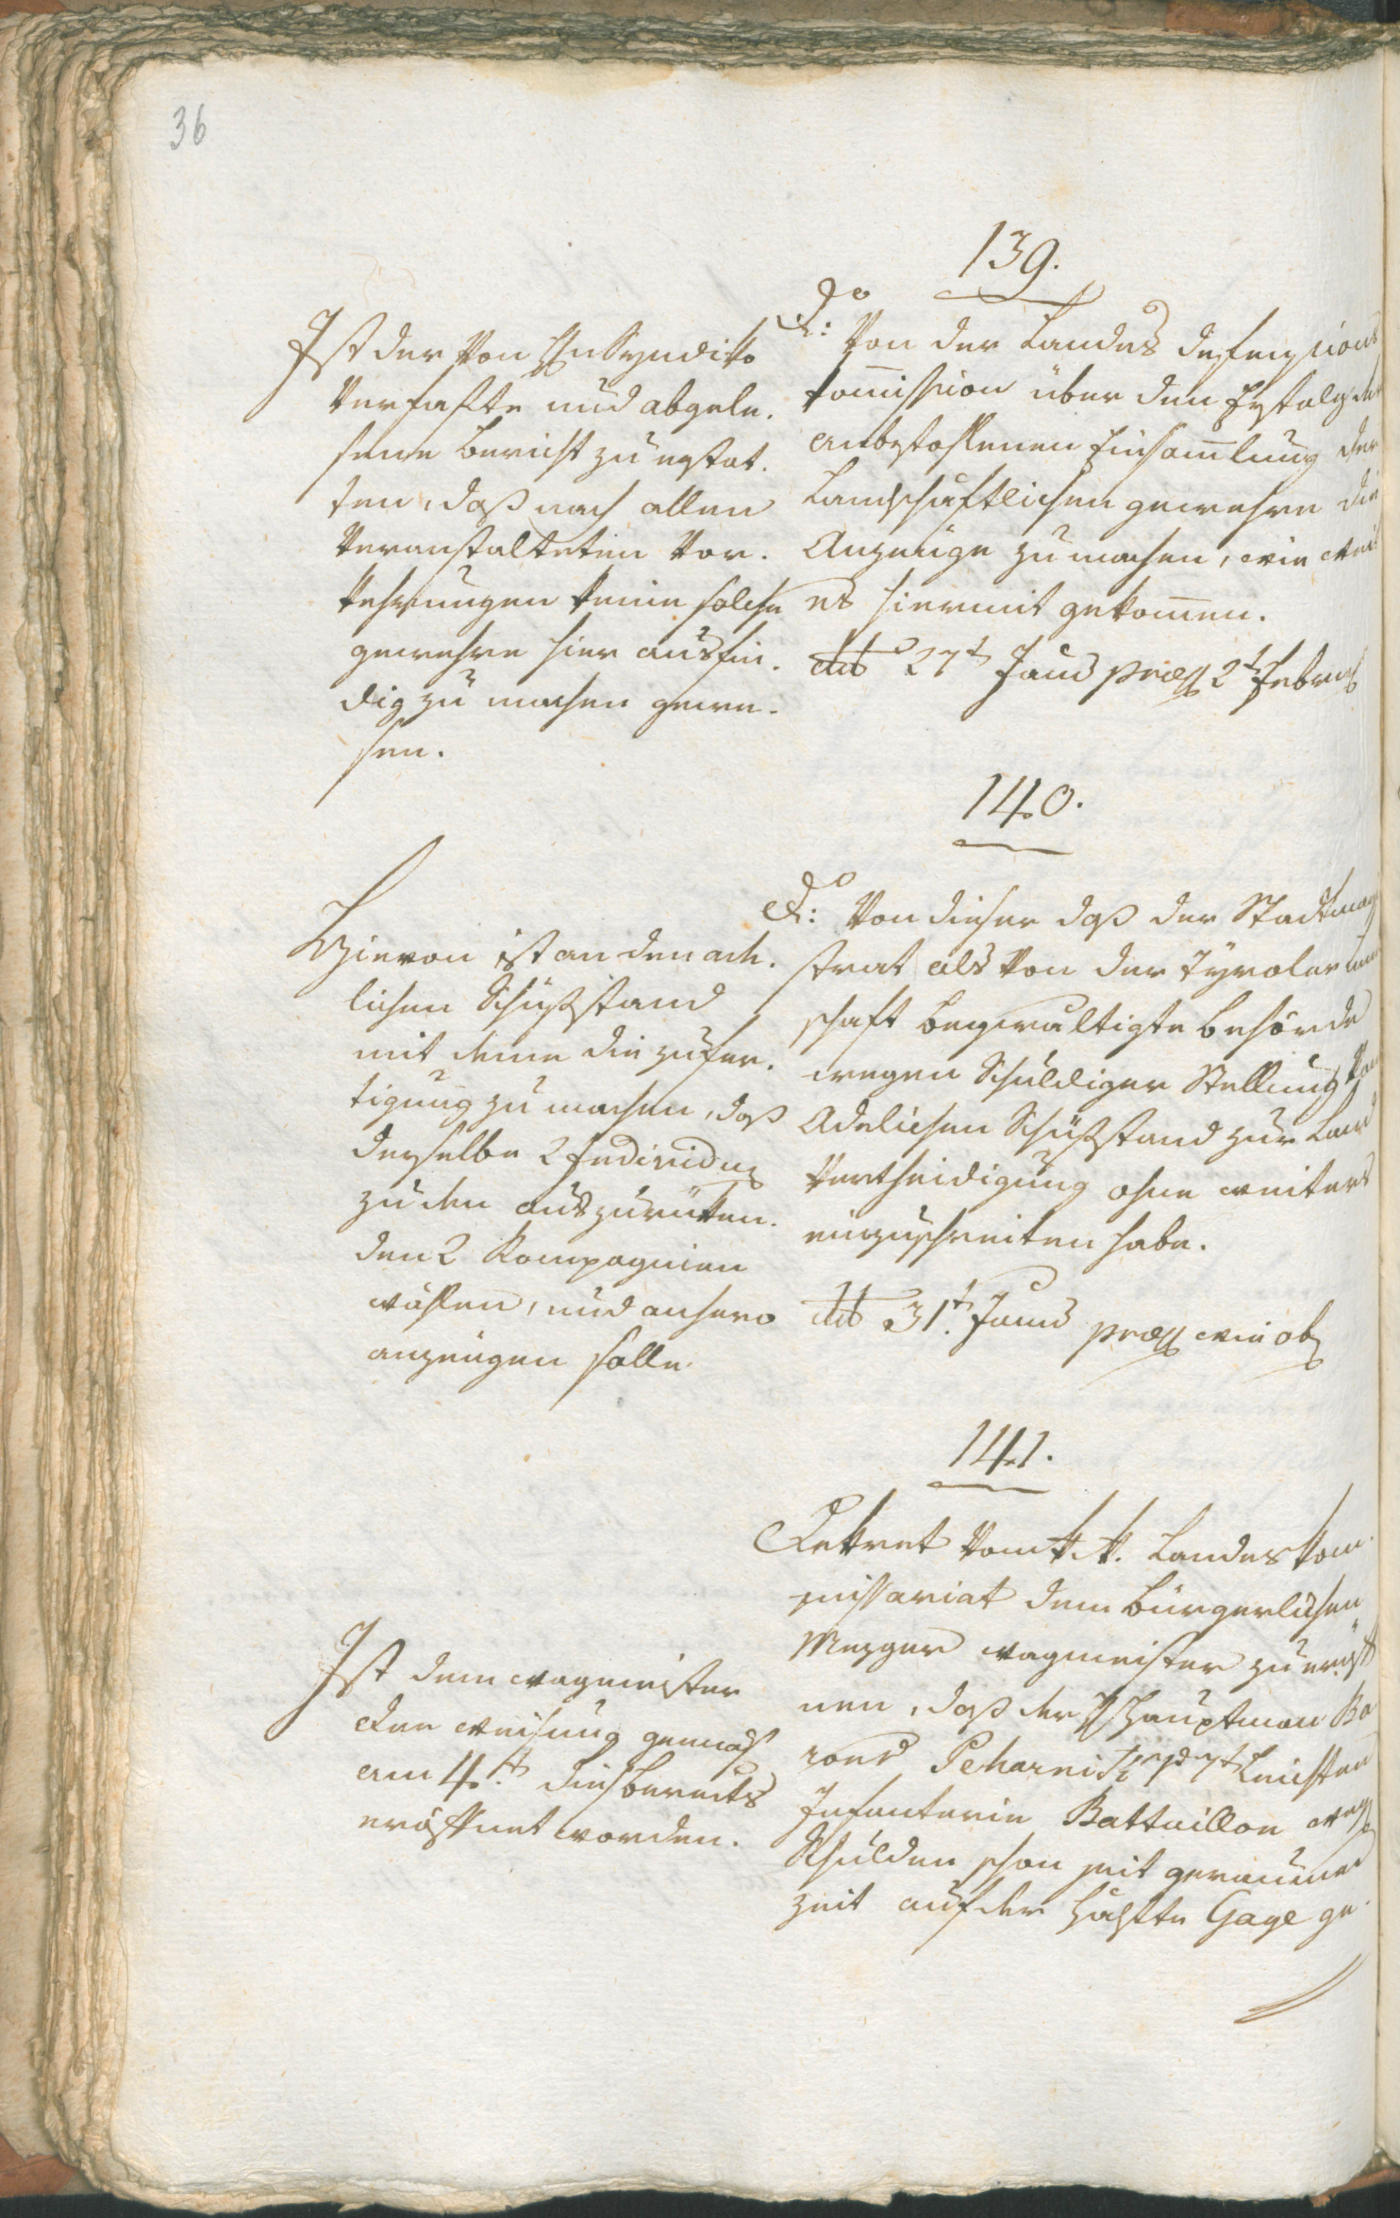 36
139.
Ist der von H Syndiko
verfaßte und abgele¬
sene Bericht zu erstat¬
ten, daß nach allen
veranstalteten Vor¬
kehrungen keine solche
gewehre hier ausfin¬
dig zu machen gewe¬
sen.
do
D: Von der Landes defensions
kom̅ission über den Erfolg der
anbefohlenen Einsam̅lung der
Landschaftlichen gewehre die
Anzeuge zu machen, wie weit
es hiermit gekom̅en.
dto 27t Jann präs 2t Febr
140.
Hievon ist an den ade¬
lichen Schützstand
mit deme die zufer¬
tigung zu machen, daß
derselbe 2 Individuen
zu den auszurüken¬
den 2 Kompagnien
wählen, und anhero
anzeugen solle.
do
D: Von dieser daß der Stadtmag
strat als von der Tyroler
schaft begwaltigte Behörde
wegen schuldiger Stellung
Adelichen Schützstand zur Land
vertheidigung ohne weiters
einzuschreiten habe.
dto 31.t Jann präs wie ob
141.
Ist dem wagmeister
der weisung gemäß
am 4.t dies bereits
eröffnet worden.
Dekret vom k. k. Landeskom¬
missariat dem bürgerlichen
Mezger wagmeister zu eröff
nen, daß der H Hauptman Ba
rons Pcharnitz 7t Leichten
Infanterie Battaillon weg
Schulden schon seit geraumer
zeit auf der hälfte Gage ge¬